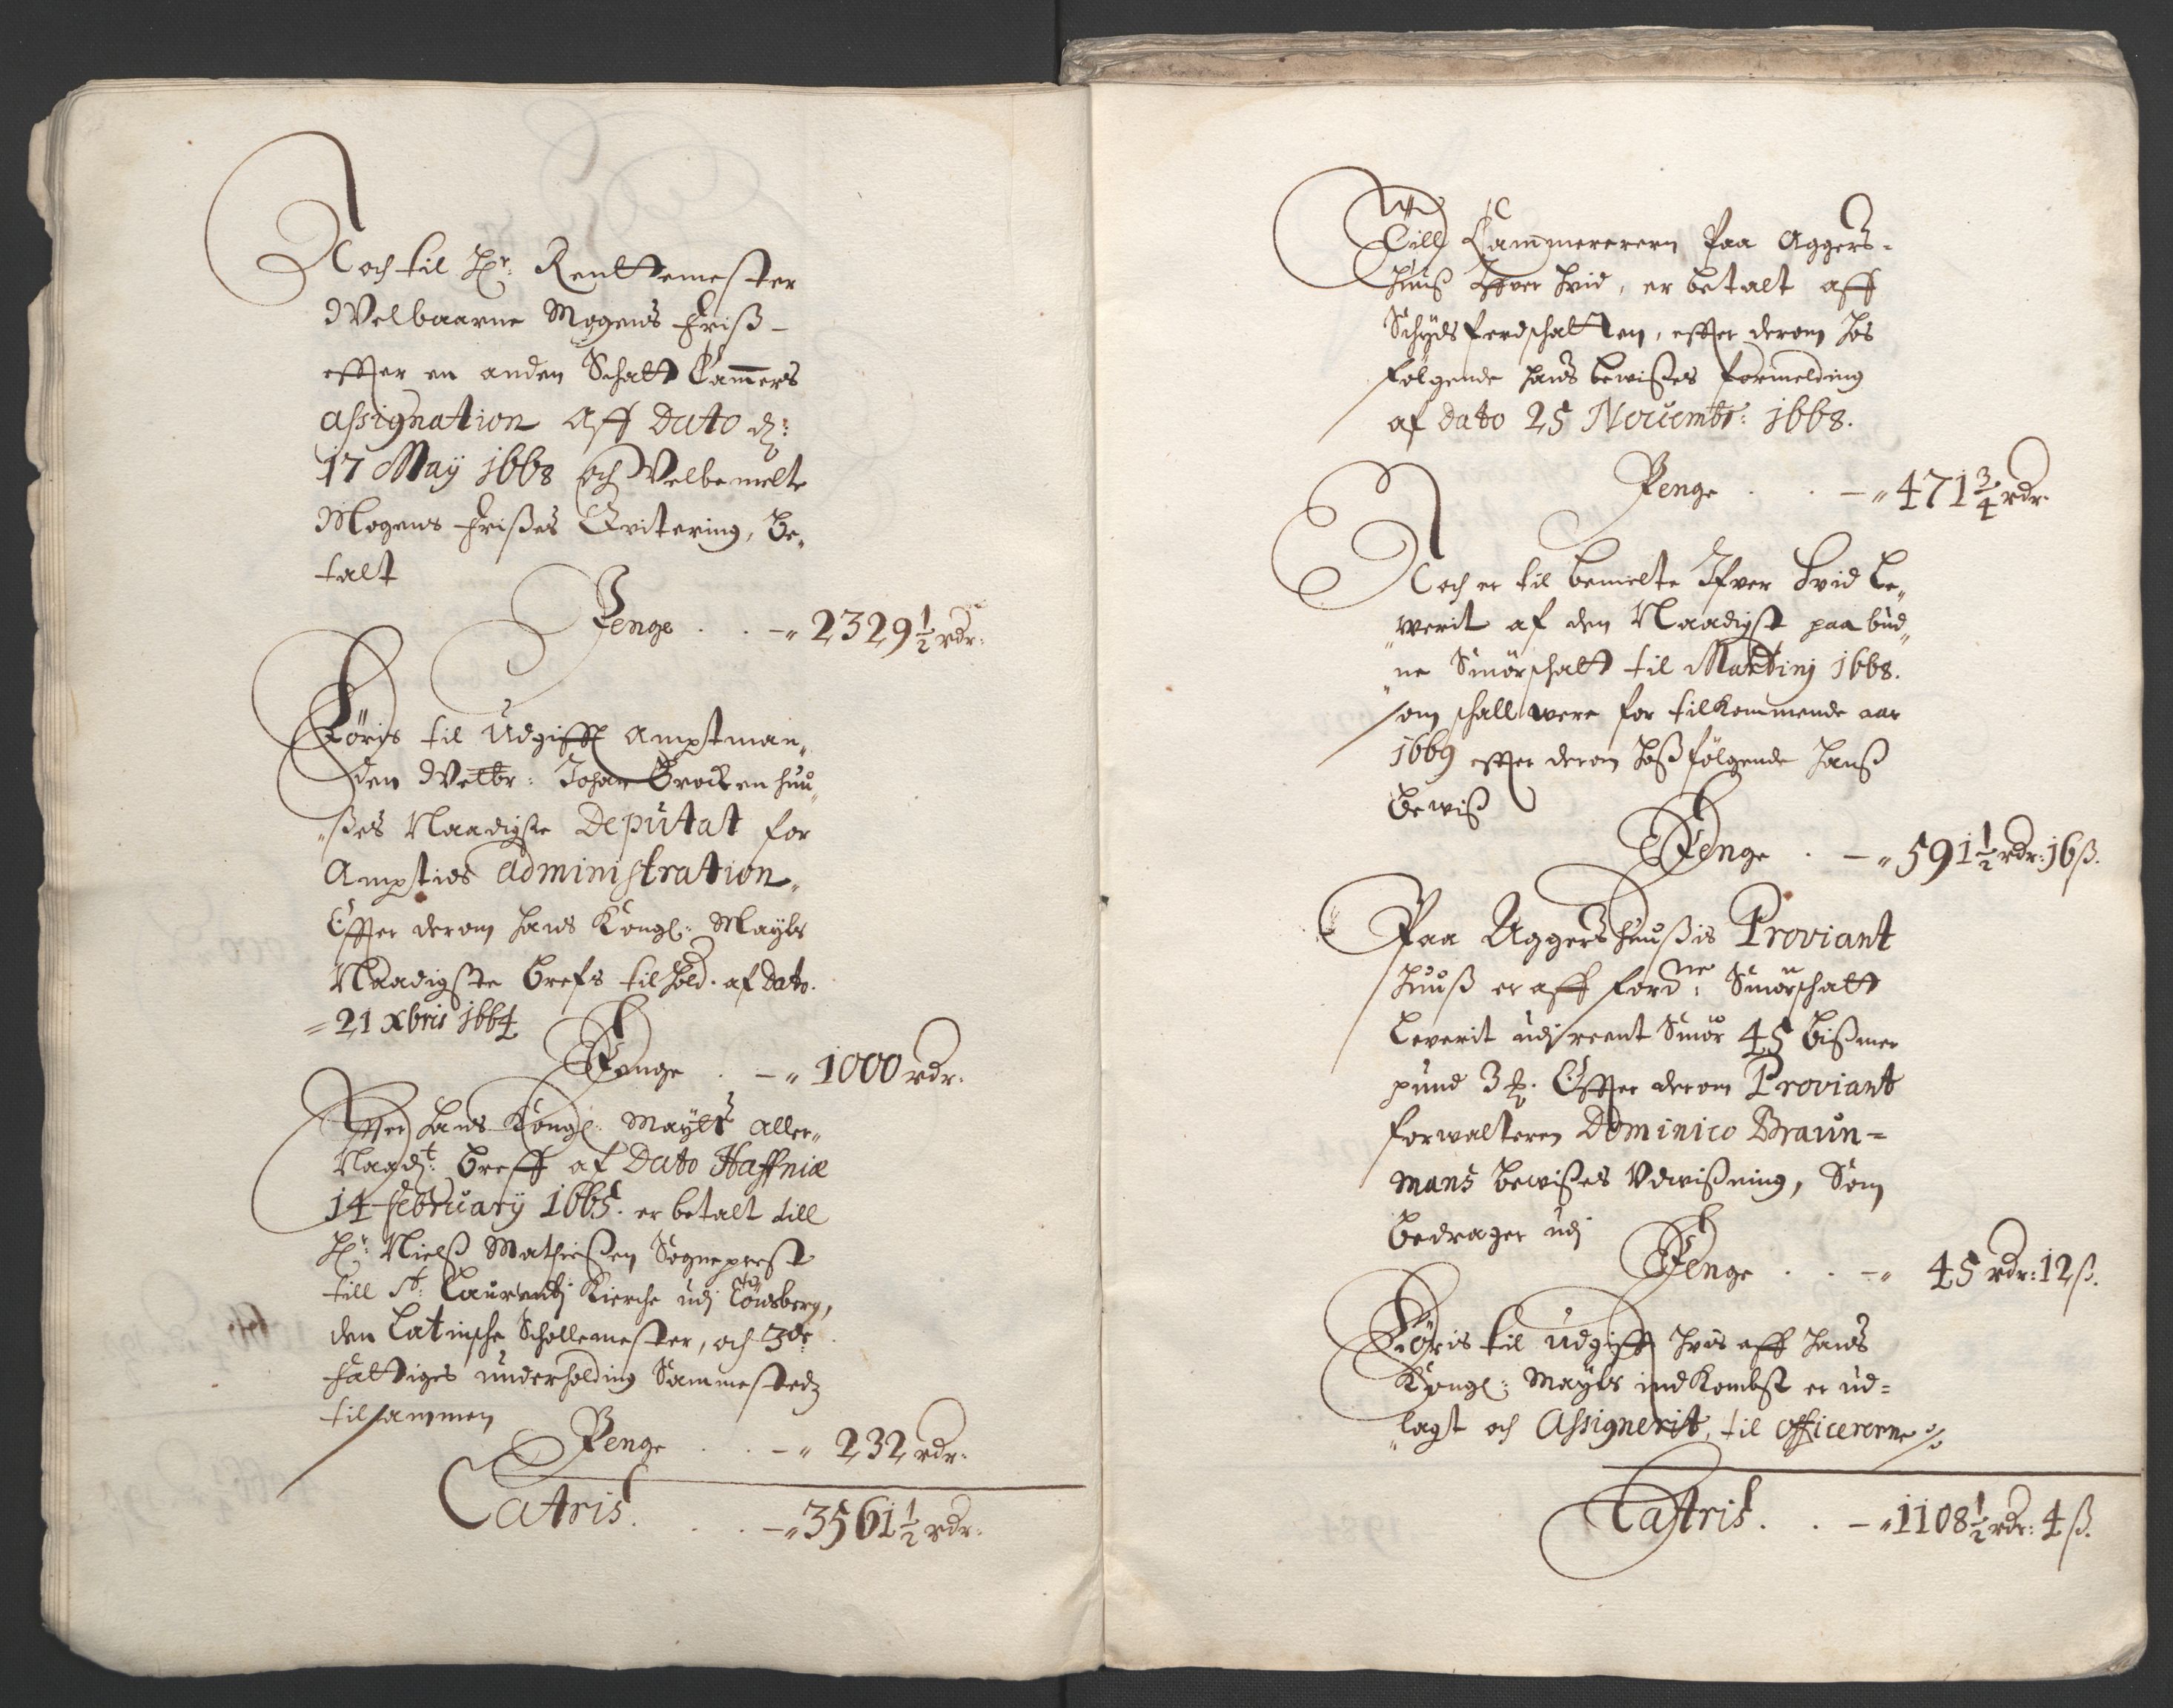 Noch til Hr: Renttemester
Welbaarne Mogens Friß
effter en anden Schatt Cammers
assignation Aff Dato d:
17 Maÿ 1668 och Velbemelte
Mogens Frißes Qvitering, Be„
talt
Penge . . –„ 2329½ rdr:
Föris til Udgifft Amptman„
den Welbr: Johan Brockenhuu„
„ßes Naadigste Deputat for
Amptids Administration„
Effter derom hans Kongl: Maÿts
Naadigste brefs tilhold. af Dato.
= 21 Xbris 1664
Penge . –„ 1000 rdr.
Effter Hans Kongl: Maÿtz Aller„
Naadt: breff af Dato Haffniæ
14 februarÿ 1665. er betalt till
Hr: Nielß Mathießen Sogneprest
till St: Laurentj Kierche udj Tönsberg,
den Latinsche Schollemester, och 3de
Fattiges underholding Sammestedz
tilsammen
Penge . . –„ 232 rdr:
Latris . . . –„ 3561½ rdr:
Till Cammererern paa Aggers=
huuß Ifver Hvid, er betalt aff
Schÿdsferdschatten, effter derom hos
følgende hans bewißes formelding
af dato 25 Novembr: 1668.
Penge . . –„ 471¾ rdr.
Noch er til bemelte Ifver Hvid Le„
„werit af den Naadigst paabud„
„ne Smörschatt til Martinj 1668.
som schall were for tilkommende aar
1669 effter derom hoßfölgende hanß
bewiß
Penge . –„ 591½ rdr: 16 ß.
Paa Aggershuußis Proviant
huuß er aff fordne: Smörschatt
Leverit udj reent Smör 45 bißmer
pund 3 ℔. Effter derom Proviant
forwalteren Dominico Braun=
mans bewißes Udwißning, Som
bedrager udj
Penge . . –„ 45 rdr: 12 ß.
Föris til Udgifft hvis aff hans
Kongl: Maÿts indkombst er ud=
„lagt och Assignerit, til officererne
Latris . . –„ 1108½ rdr: 4 ß.